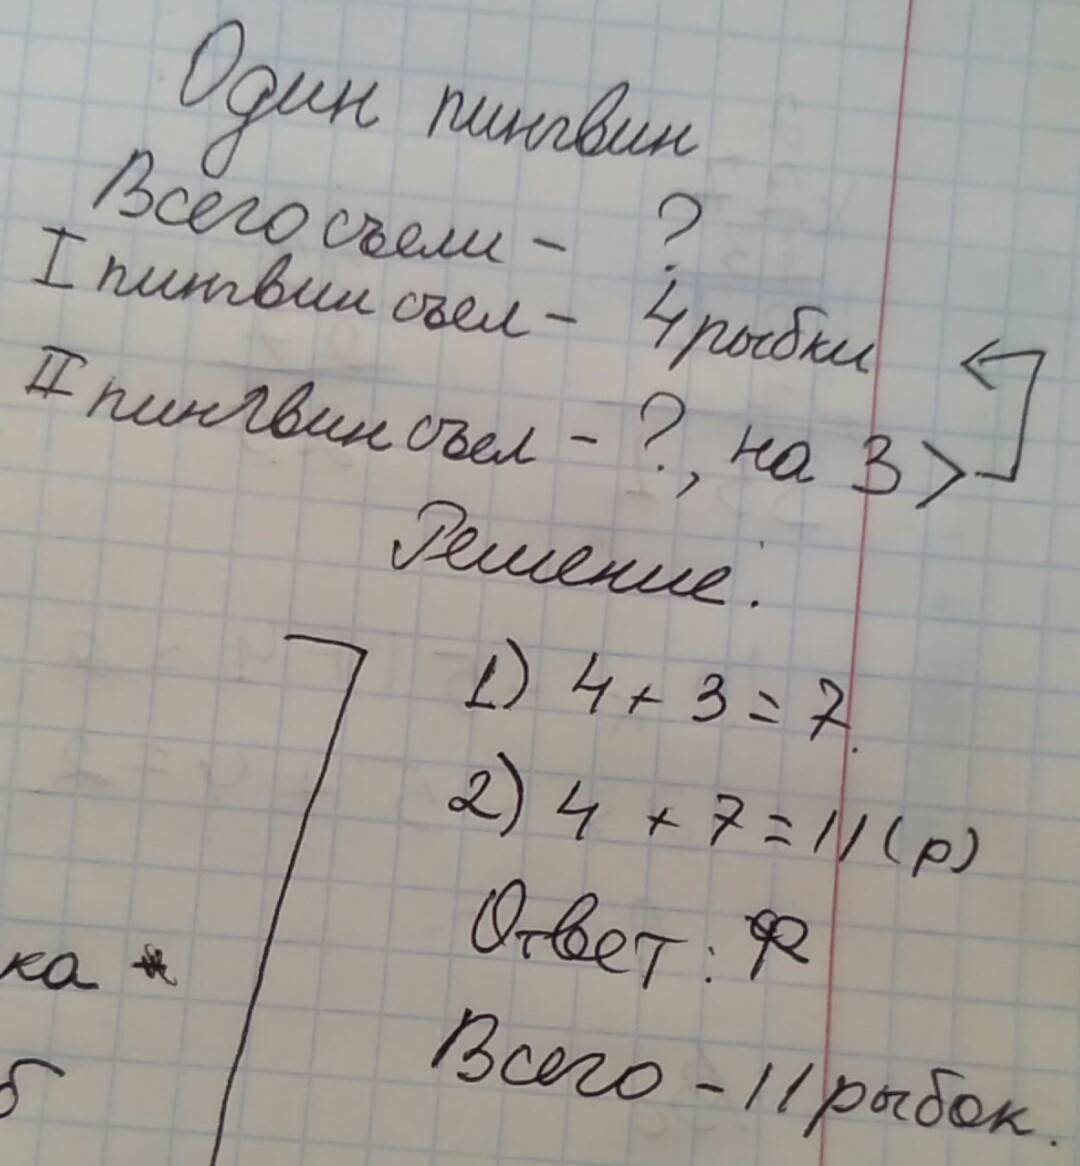 Один пингвин
Всего съели - ?
I пингвин съел - 4 рыбки
II пингвин съел - ?, на 3 >
Решение:
1) 4 + 3 = 7
2) 4 + 7 = 11 (р)
Ответ:
Всего - 11 рыбок.
ка
б